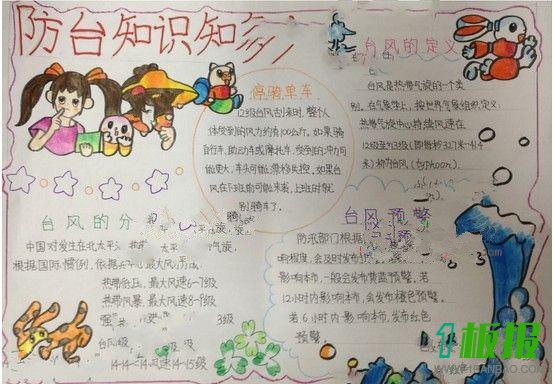 防台知识知多
停骑单车
12级台风刮来时,整个人
体受到的风力约有100公斤,如果骑
自行车、助动车或摩托车,受到的冲力可
能更大,车头可能会漂移失控。如果台
风在下班时可能来袭,上班时就
别骑车了。
台风的定义
台风是热带气旋的一个类
别。在气象学上,按世界气象组织定义:
热带气旋中心持续风速在
12级至13级(即每秒32.7米-41.4
米)称为台风(typhoon)。
台风的分
中国对发生在北太平
根据国际惯例,依据
最大风力
热带低压,最大风速6-7级
热带风暴,最大风速8-9级
台风级
14-15级
台风预警
防汛部门根据
响程度,会及时发布
影响本市,一般会发布黄蓝预警。若
12小时内影响本市,会发布橙色预警。
若6小时内影响本市,发布红色
预警。
1板报
WWW.1BANBAO.COM